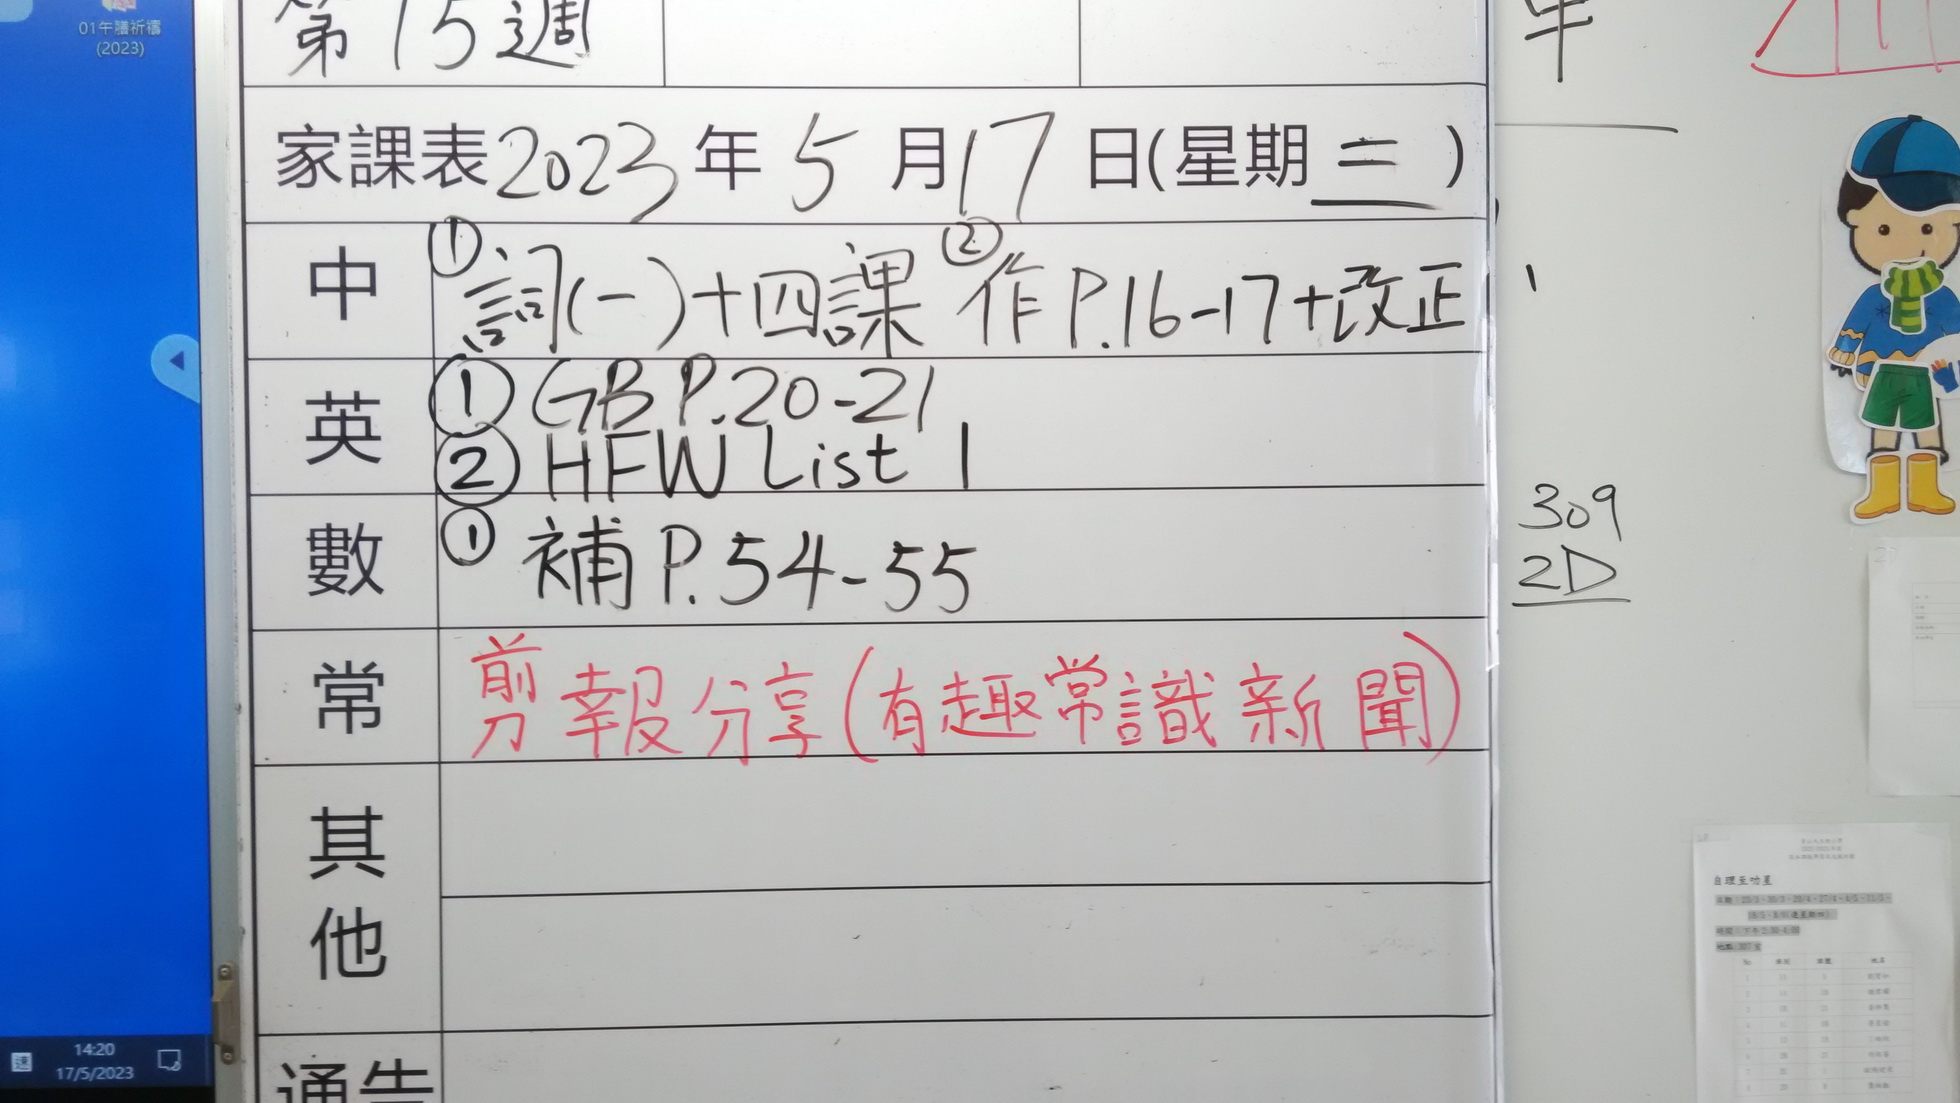 01午膳祈禱
(2023)
第15週
家課表2023年5月17日(星期三)
中 ①詞(一)十四課 ②作P.16-17+改正
英 ①GB P.20-21
②HFW List 1
數 ①補P.54-55
309
2D
常 剪報分享(有趣常識新聞)
其他
通告
14:20
17/5/2023
自理至叻星